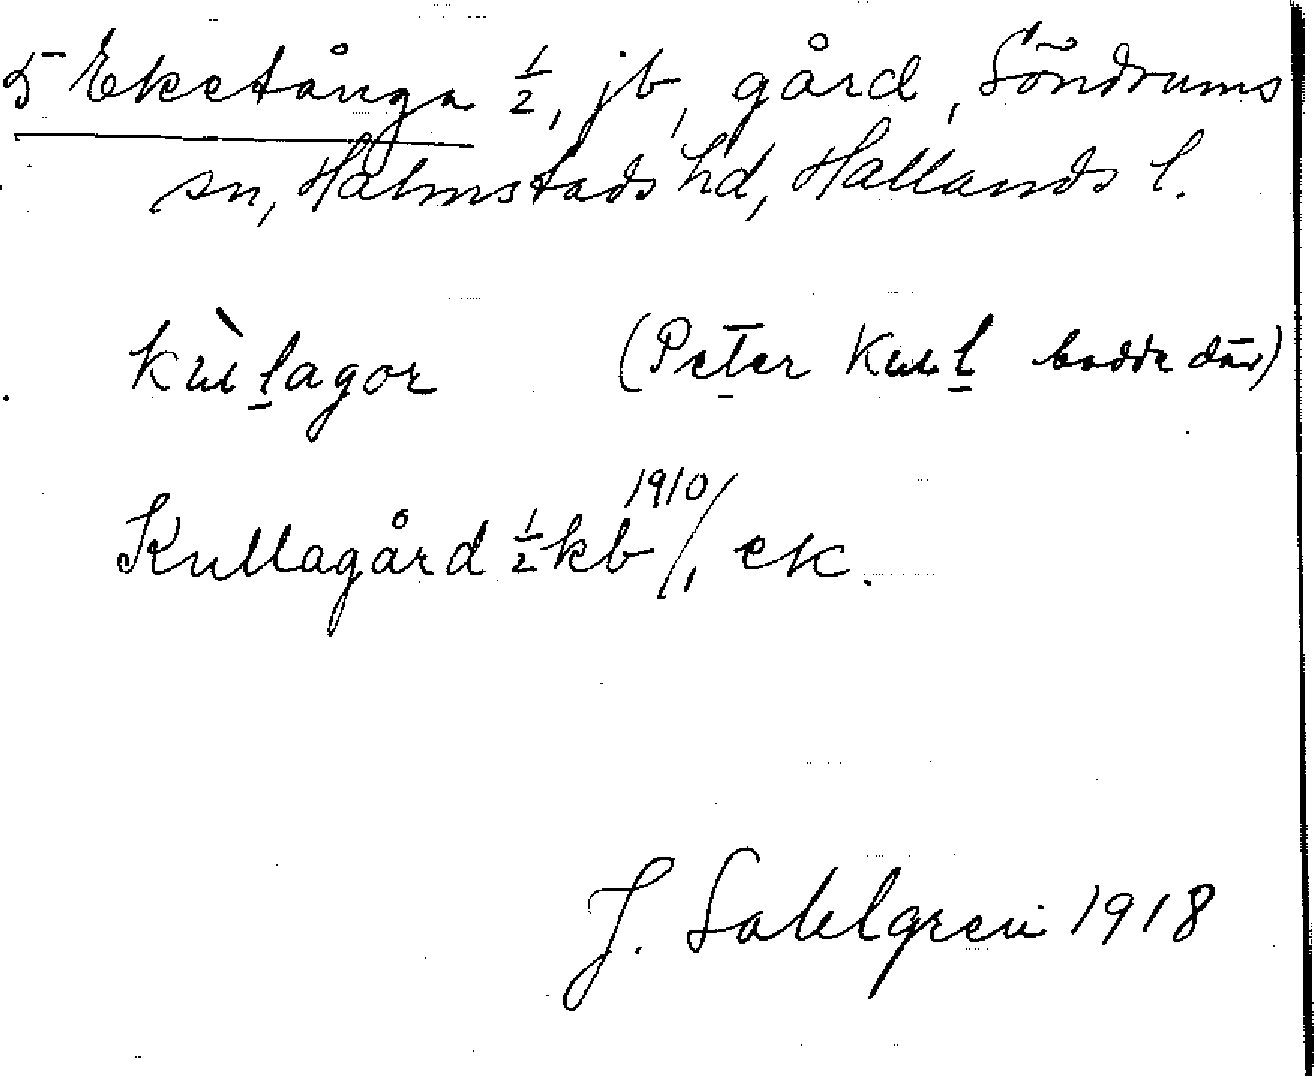 5 Eketånga 1/2, jb, gård, Söndrums
sn, Halmstads hd, Hallands l.
kùlagor (Peter Kul bodde där)
Kullagård 1/2 kb 1910/, ek.
J. Sahlgren 1918